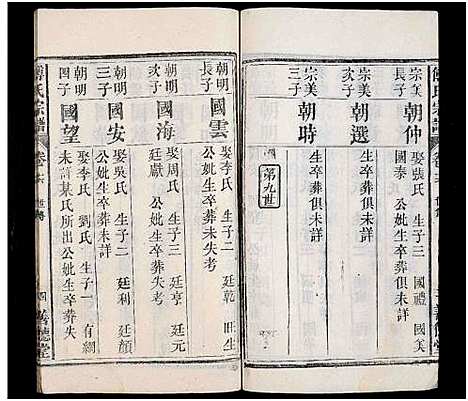 傅氏宗譜
卷之六
世傳
善德堂
宗美長子
朝仲
娶張氏 生子三 國禮 國美
國泰 公妣生卒葬俱未詳
宗美次子
朝選
生卒葬俱未詳
宗美三子
朝時
生卒葬俱未詳
第九世
朝明長子
國雲
娶李氏 生子二 廷乾 旺生
公妣生卒葬未失考
朝明次子
國海
娶周氏 生子三 廷亨 廷元
廷獻 公妣生卒葬失考
朝明三子
國安
娶氏 生子二 廷利 廷顏
公妣生卒葬未詳
朝明四子
國望
娶李氏 劉氏 生子一 有綱
未詳某氏所出公妣生卒葬失
傅氏宗譜
卷之六
世傳
四
善德堂